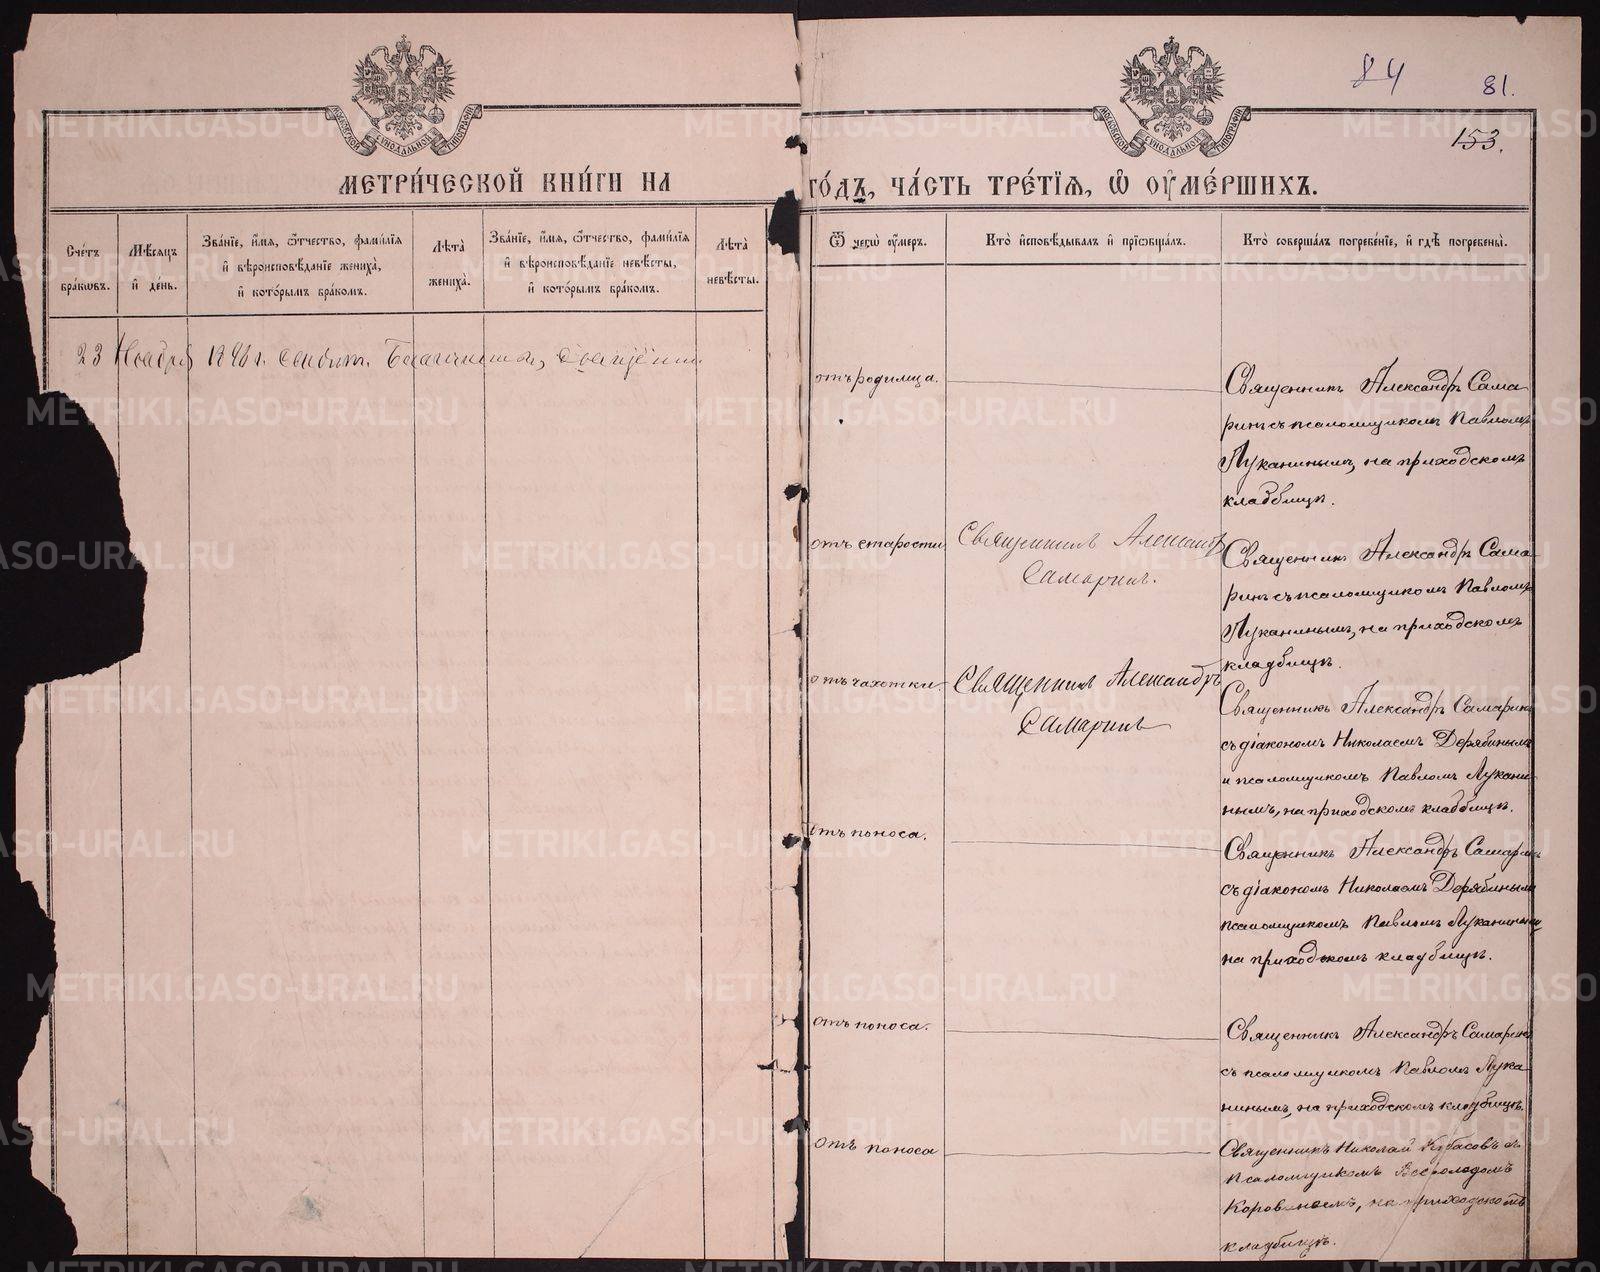 МОСКОВСКОЙ СѴНОДАЛЬНОЙ ТИПОГРАФІИ
МЕТРИ́ЧЕСКОЙ КНИ́ГИ НА
Сче́тъ бра́кωвъ.
Мѣ́сяцъ и҆ де́нь.
Зва́нїе, и҆́мя, ѻ҆́тчество, фами́лїя и҆ вѣроисповѣ́данїе жениха̀, и҆ кото́рымъ бра́комъ.
Лѣ́та жениха̀.
Зва́нїе, и҆́мя, ѻ҆́тчество, фами́лїя и҆ вѣроисповѣ́данїе невѣ́сты, и҆ кото́рымъ бра́комъ.
Лѣ́та невѣ́сты.
23 Ноября
84
81.
153.
МОСКОВСКОЙ СѴНОДАЛЬНОЙ ТИПОГРАФІИ
ГО́ДЪ, ЧА́СТЬ ТРЕ́ТЇЯ, Ѡ҆ ОУ҆МЕ́РШИХЪ.
Ѿ чегѡ̀ оу҆́меръ.
Кто̀ и҆сповѣ́дывалъ и҆ прїѡбща́лъ.
Кто̀ соверша́лъ погребе́нїе, и҆ гдѣ̀ погребены̀.
отъ родимца.
Священникъ Александръ Сама
ринъ съ псаломщикомъ Павломъ
Луканинымъ, на приходскомъ
кладбищѣ.
отъ старости
Священникъ Александръ
Самаринъ.
Священникъ Александръ Сама
ринъ съ псаломщикомъ Павломъ
Луканинымъ, на приходскомъ
кладбищѣ.
отъ чахотки.
Священникъ Александръ
Самаринъ
Священникъ Александръ Самаринъ
съ діакономъ Николаемъ Дерябинымъ
и псаломщикомъ Павломъ Лукани
нымъ, на приходскомъ кладбищѣ.
отъ поноса.
Священникъ Александръ Самаринъ
съ діакономъ Николаемъ Дерябинымъ
псаломщикомъ Павломъ Луканинымъ,
на приходскомъ кладбищѣ.
отъ поноса.
Священникъ Александръ Самаринъ
съ псаломщикомъ Павломъ Лука
нинымъ, на приходскомъ кладбищѣ.
отъ поноса
Священникъ Николай Кубасовъ съ
псаломщикомъ Всеволодомъ
на приходскомъ
кладбищѣ.
METRIKI.GASO-URAL.RU